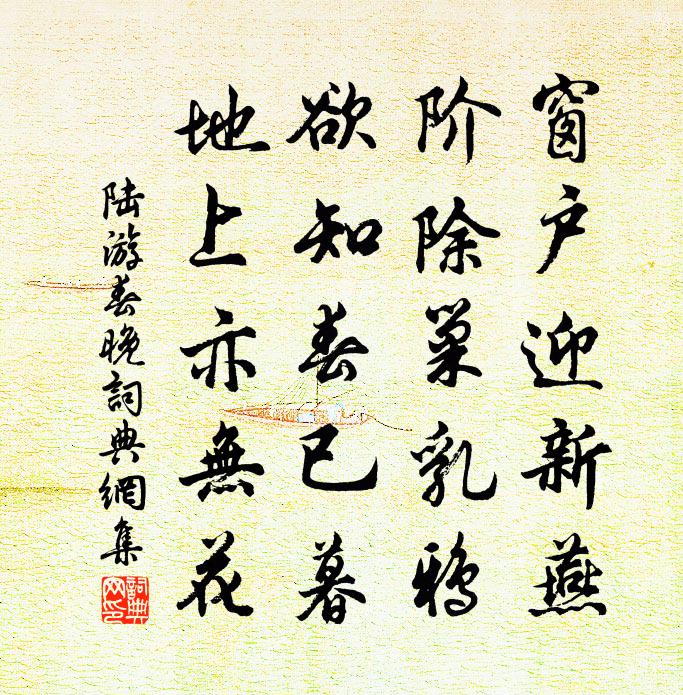 窗户迎新燕
阶除巢乳鸦
欲知春已暮
地上亦無花
陆游春晚詞典網集
詞典网印